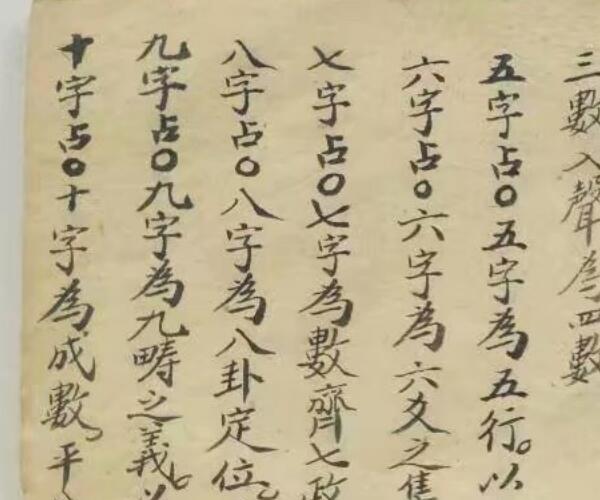 三數入聲為四數
五字占○五字為五行。以
六字占○六字為六爻之集
七字占○七字為數齊七政
八字占○八字為八卦定位。
九字占○九字為九疇之義。
十字占○十字為成數。平